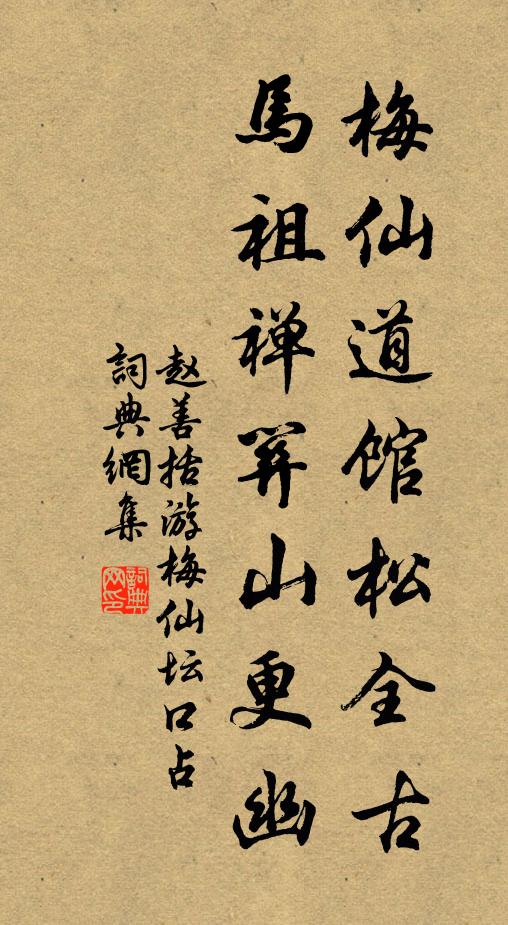 梅仙道馆松全古
馬祖禅關山更幽
赵善括游梅仙坛口占
詞典網集
詞典网印